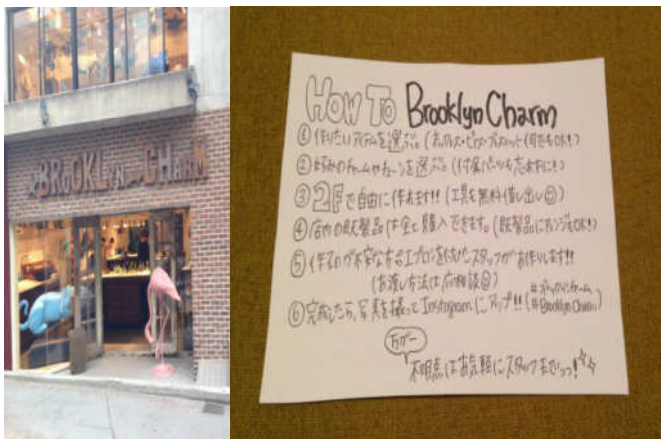 BROOKLYN CHARM
How To Brooklyn Charm
① 作りたいアイテムを選ぶ。(ネックレス・ピアス・ブレスレット何でもOK!)
② お好みのチャームやチェーンを選ぶ。(付属パーツも忘れずに!)
③ 2Fで自由に作れます!! (工具も無料貸し出し☺)
④ 店内の既製品は全て購入できます。(既製品にアレンジもOK!)
⑤ 作るのが不安な方はエプロンを付けたスタッフがお作りします!!
(お渡し方法は応相談☺)
⑥ 完成したら、写真を撮ってInstagramにアップ!! (#ブルックリンチャーム #Brooklyn Charm)
万が一
不明点はお気軽にスタッフまでっっ!